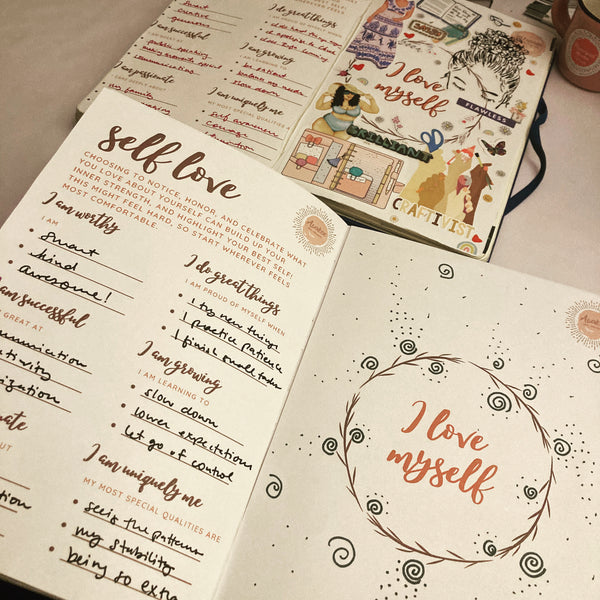 self love
CHOOSING TO NOTICE, HONOR, AND CELEBRATE WHAT
YOU LOVE ABOUT YOURSELF CAN BUILD UP YOUR
INNER STRENGTH, AND HIGHLIGHT YOUR BEST SELF!
THIS MIGHT FEEL HARD, SO START WHEREVER FEELS
MOST COMFORTABLE.
I am worthy
I AM
smart
kind
awesome!
am successful
GREAT AT
I do great things
I AM PROUD OF MYSELF WHEN
I try new things
I practice patience
I finish small tasks
I am growing
I AM LEARNING TO
slow down
lower expectations
let go of control
I am uniquely me
MY MOST SPECIAL QUALITIES ARE
seeing the patterns
my stability
being so extra
I love
myself
I do great things
I AM PROUD OF MYSELF WHEN
successful
public speaking
communication
I am passionate
I CARE DEEPLY ABOUT
my family
I am growing
I AM LEARNING TO
slow down
I am uniquely me
MY MOST SPECIAL QUALITIES A
self awareness
courage
I love
myself
FLAWLESS
BRILLIANT
CRAFTIVIST